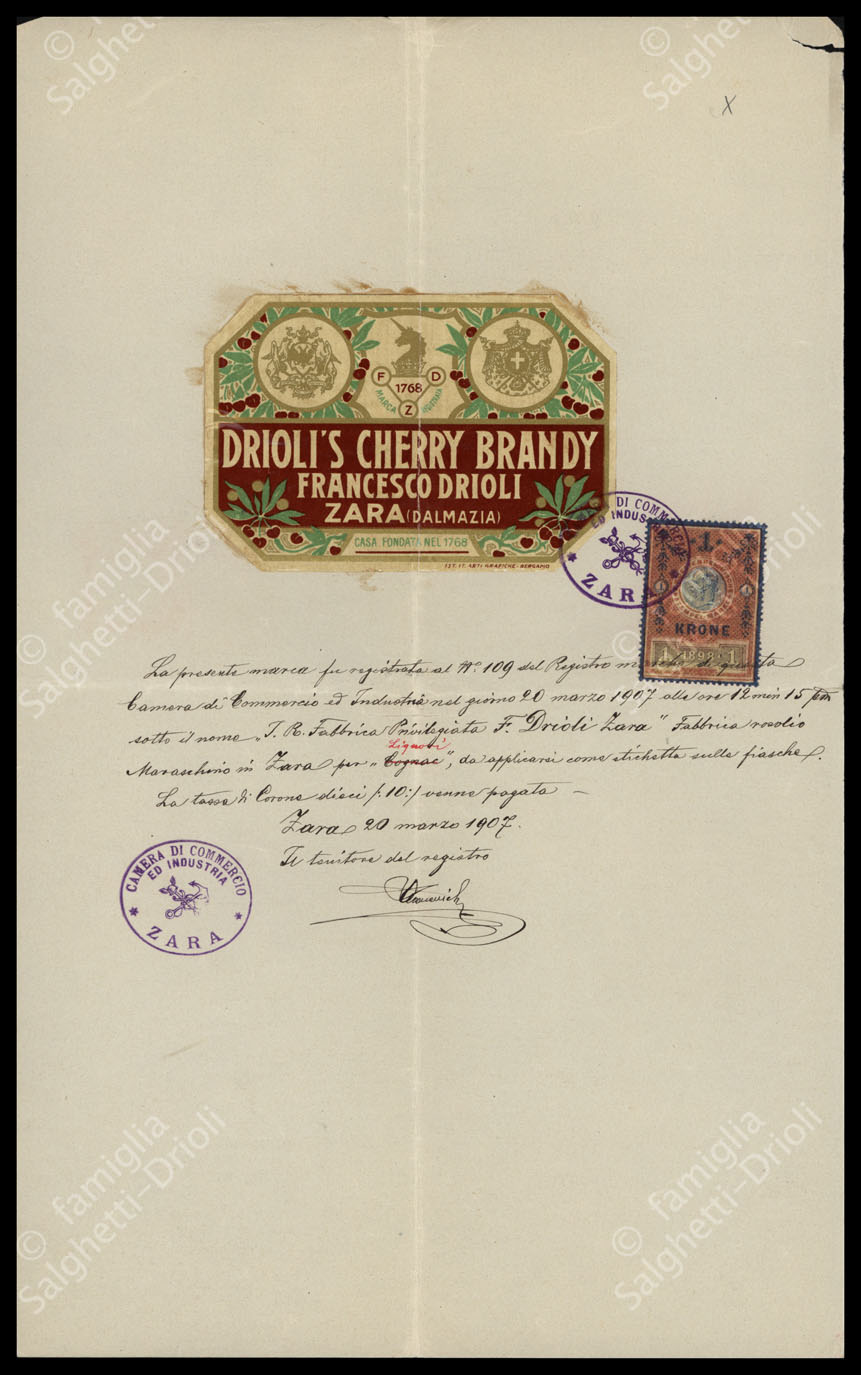 © famiglia
Salghetti-Drioli
© famiglia
Salghetti-Drioli
X
F D
1768
MARCA
Z
DRIOLI'S CHERRY BRANDY
FRANCESCO DRIOLI
ZARA (DALMAZIA)
CASA FONDATA NEL 1768
IST. IT. ARTI GRAFICHE - BERGAMO
DI COMM
ED INDUS
ZARA
1
KRONE
1 1898 1
© famiglia
Salghetti-Drioli
© famiglia
Salghetti-Drioli
La presente marca fu registrata al No. 109 del Registro marche di questa
Camera di Commercio ed Industria nel giorno 20 marzo 1907 alle ore 12 min 15 pm
sotto il nome „I. R. Fabbrica Privilegiata F. Drioli Zara" Fabbrica rosolio
Liquori
Maraschino in Zara per „Cognac", da applicarsi come etichetta sulle fiasche.
La tassa di Corone dieci /:10:/ venne pagata –
Zara 20 marzo 1907.
Il tenitore del registro
CAMERA DI COMMERCIO
ED INDUSTRIA
ZARA
© famiglia
Salghetti-Drioli
© famiglia
Salghetti-Drioli